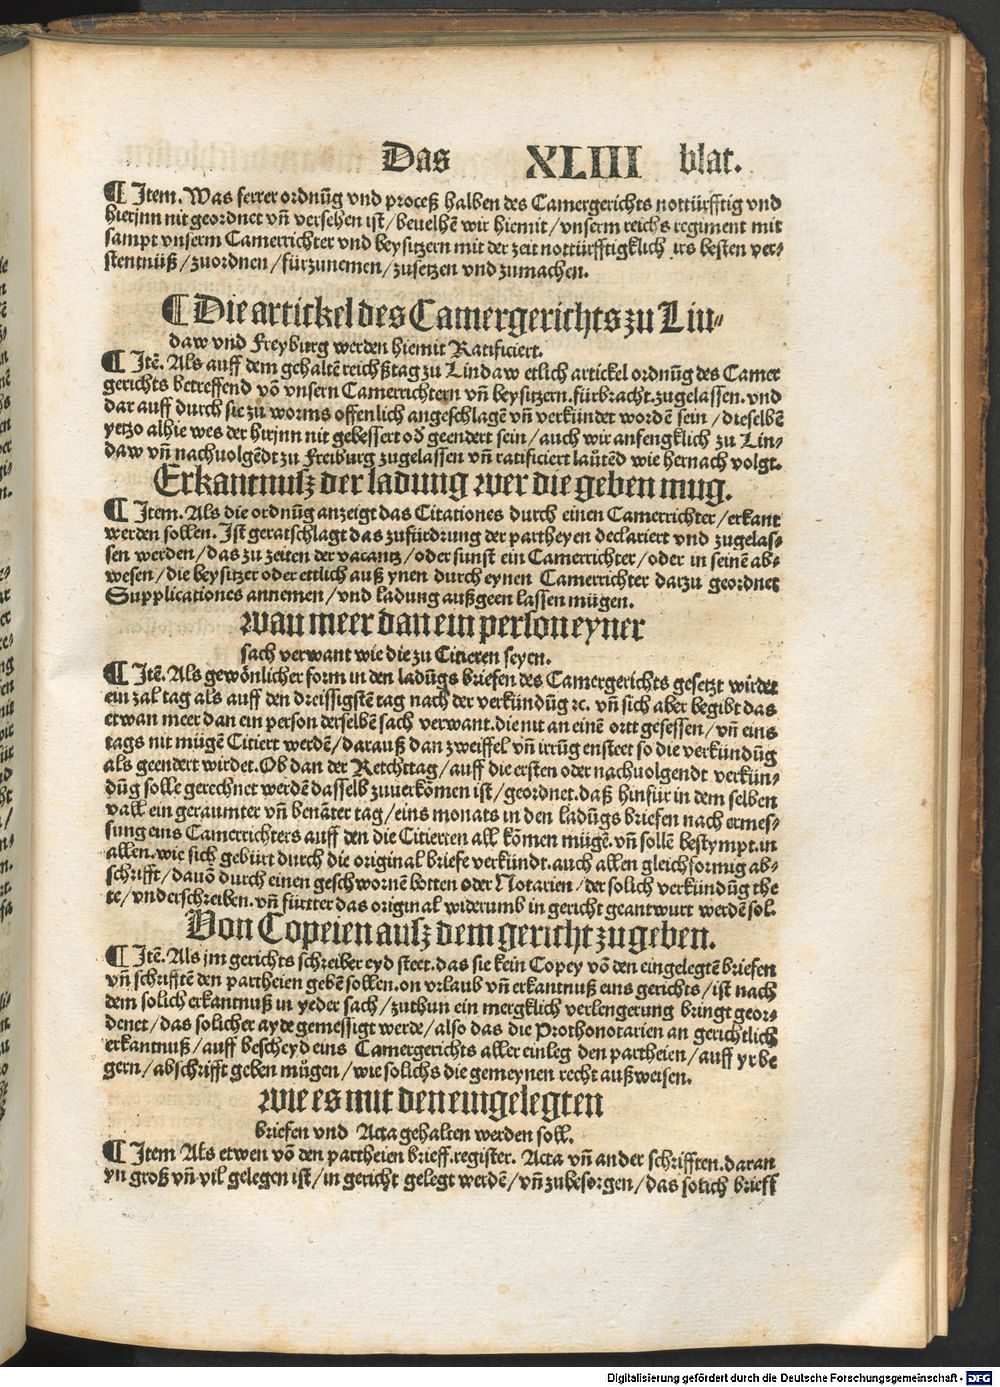 Das XLIII blat.
¶ Item. Was ferrer ordnūg vnd proceß halben des Camergerichts nottürfftig vnd
hierjnn nit geordnet vñ versehen ist / beuelhē wir hiemit / vnserm reichs regiment mit
sampt vnserm Camerrichter vnd beysitzern mit der zeit nottürfftigklich irs besten ver⸗
stentnüß / zuordnen / fürzunemen / zusetzen vnd zumachen.
¶ Die artickel des Camergerichts zu Lin⸗
daw vnd Freyburg werden hiemit Ratificiert.
¶ Itē. Als auff dem gehaltē reichßtag zu Lindaw etlich artickel ordnūg des Camer
gerichts betreffend vō vnsern Camerrichtern vñ beysitzern. fürbracht. zugelassen. vnd
dar auff durch sie zu worms offenlich angeschlagē vñ verkündet wordē sein / dieselben
yetzo alhie wes der hirjnn nit gebessert od̕ geendert sein / auch wir anfengklich zu Lin⸗
daw vñ nachuolgēdt zu Freiburg zugelassen vñ ratificiert lautēd wie hernach volgt.
Erkantnusz der ladung wer die geben mug.
¶ Item. Als die ordnūg anzeigt das Citationes durch einen Camerrichter / erkant
werden sollen. Ist geratschlagt das zufürdrung der partheyen declariert vnd zugelas⸗
sen werden / das zu zeiten der vacantz / oder sunst ein Camerrichter / oder in seinē ab⸗
wesen / die beysitzer oder ettlich auß ynen durch eynen Camerrichter darzu geordnet
Supplicationes annemen / vnd ladung außgeen lassen mügen.
wan meer dan ein person eyner
sach verwant wie die zu Citieren seyen.
¶ Itē. Als gewönlicher form in den ladūgs briefen des Camergerichts gesetzt wirdet
ein zal tag als auff den dreissigstē tag nach der verkündūg ꝛc. vñ sich aber begibt das
etwan meer dan ein person derselbē sach verwant. die nit an einē ortt gesessen / vñ eins
tags nit mügē Citiert werdē / darauß dan zweiffel vñ irrūg ensteet so die verkündūg
als geendert wirdet. Ob dan der Rechttag / auff die ersten oder nachuolgendt verkün⸗
dūg solle gerechnet werdē dasselb zuuerkōmen ist / geordnet. daß hinfür in dem selben
vall ein geraumter vñ benāter tag / eins monats in den ladūgs briefen nach ermes⸗
sung eins Camerrichters auff den die Citierten all kōmen mügē. vñ sollē bestympt. in
allen. wie sich gebürt durch die original briefe verkündt. auch allen gleichformig ab⸗
schrifft / dauō durch einen geschwornē botten oder Notarien / der solich verkündūg the
te / vnderschreiben. vñ fürtter das original widerumb in gericht geantwurt werdē sol.
Von Copeien ausz dem gericht zugeben.
¶ Itē. Als jm gerichts schreiber eyd steet. das sie kein Copey vō den eingelegtē briefen
vñ schrifftē den partheien gebē sollen. on vrlaub vñ erkantnuß eins gerichts / ist nach
dem solich erkantnuß in yeder sach / zuthun ein mergklich verlengerung bringt geor⸗
denet / das solicher ayde gemessigt werde / also das die Prothonotarien an gerichtlich
erkantnuß / auff bescheyd eins Camergerichts aller einleg den partheien / auff yr be
gern / abschrifft geben mügen / wie solichs die gemeynen recht außweisen.
wie es mit den eingelegten
briefen vnd Acta gehalten werden soll.
¶ Item Als etwen vō den partheien brieff. register. Acta vñ ander schrifften. daran
yn groß vñ vil gelegen ist / in gericht gelegt werdē / vñ zubesorgen / das solich brieff
Digitalisierung gefördert durch die Deutsche Forschungsgemeinschaft - DFG